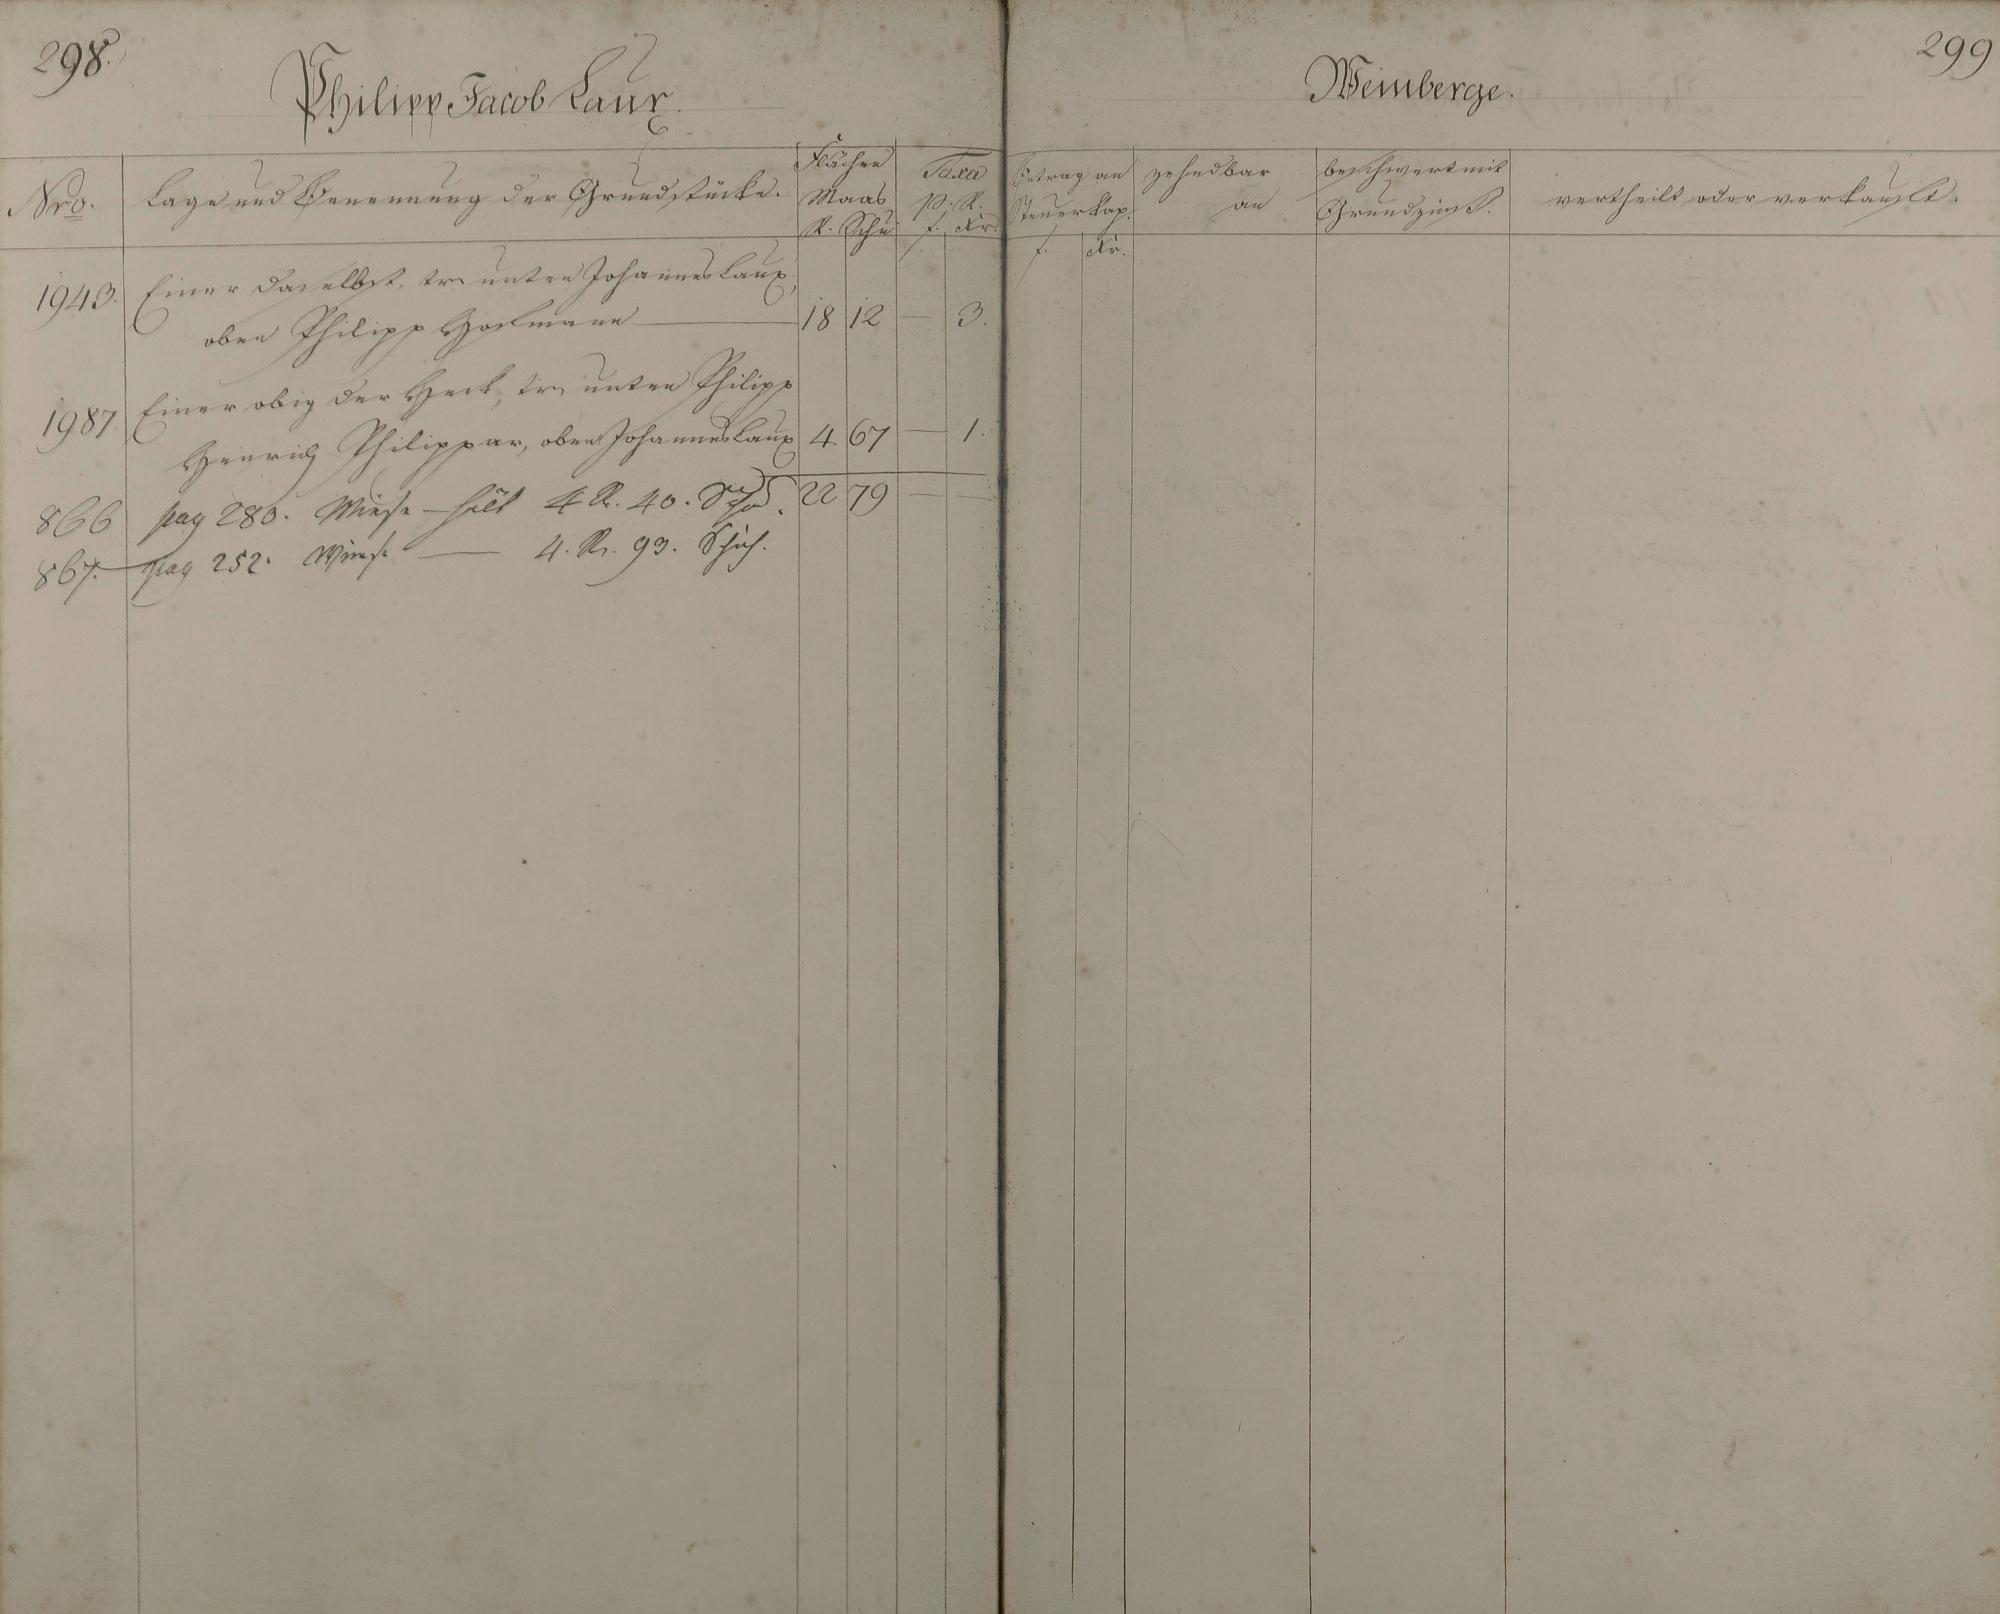 298.
Philipp Jacob Laux.
Nro.
Lage und Benennung der Grundstücke.
Flächen
Maas
R. Schu
Taxa
p. R.
f. Xr.
1943. Einer daselbst, tr. unten Johannes Laux,
oben Philipp Hofmann — 18 12 — 3.
1987. Einer obig der Heck, tr. unten Philipp
Henrich Philippar, oben Johannes Laux 4 67 — 1.
22 79 — —
866 pag 280. Wiese — hält 4 R. 40. Schu.
867. pag 252. Wiese — 4. R. 93. Schuh.
299
Weinberge.
Betrag an
Steuerkap.
f. Xr.
zehndbar
an
beschwert mit
Grundzinß.
vertheilt oder verkauft.